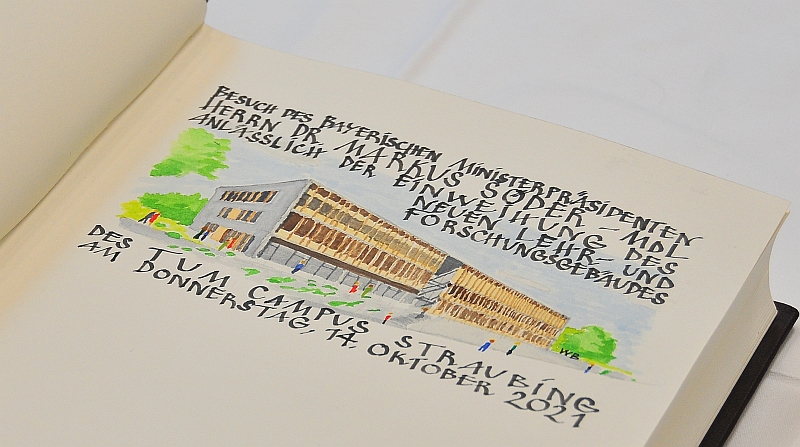 BESUCH DES BAYERISCHEN MINISTERPRÄSIDENTEN
HERRN DR. MARKUS SÖDER – MDL
ANLÄSSLICH DER EINWEIHUNG DES
NEUEN LEHR- UND
FORSCHUNGSGEBÄUDES
WB
DES TUM CAMPUS STRAUBING
AM DONNERSTAG, 14. OKTOBER 2021